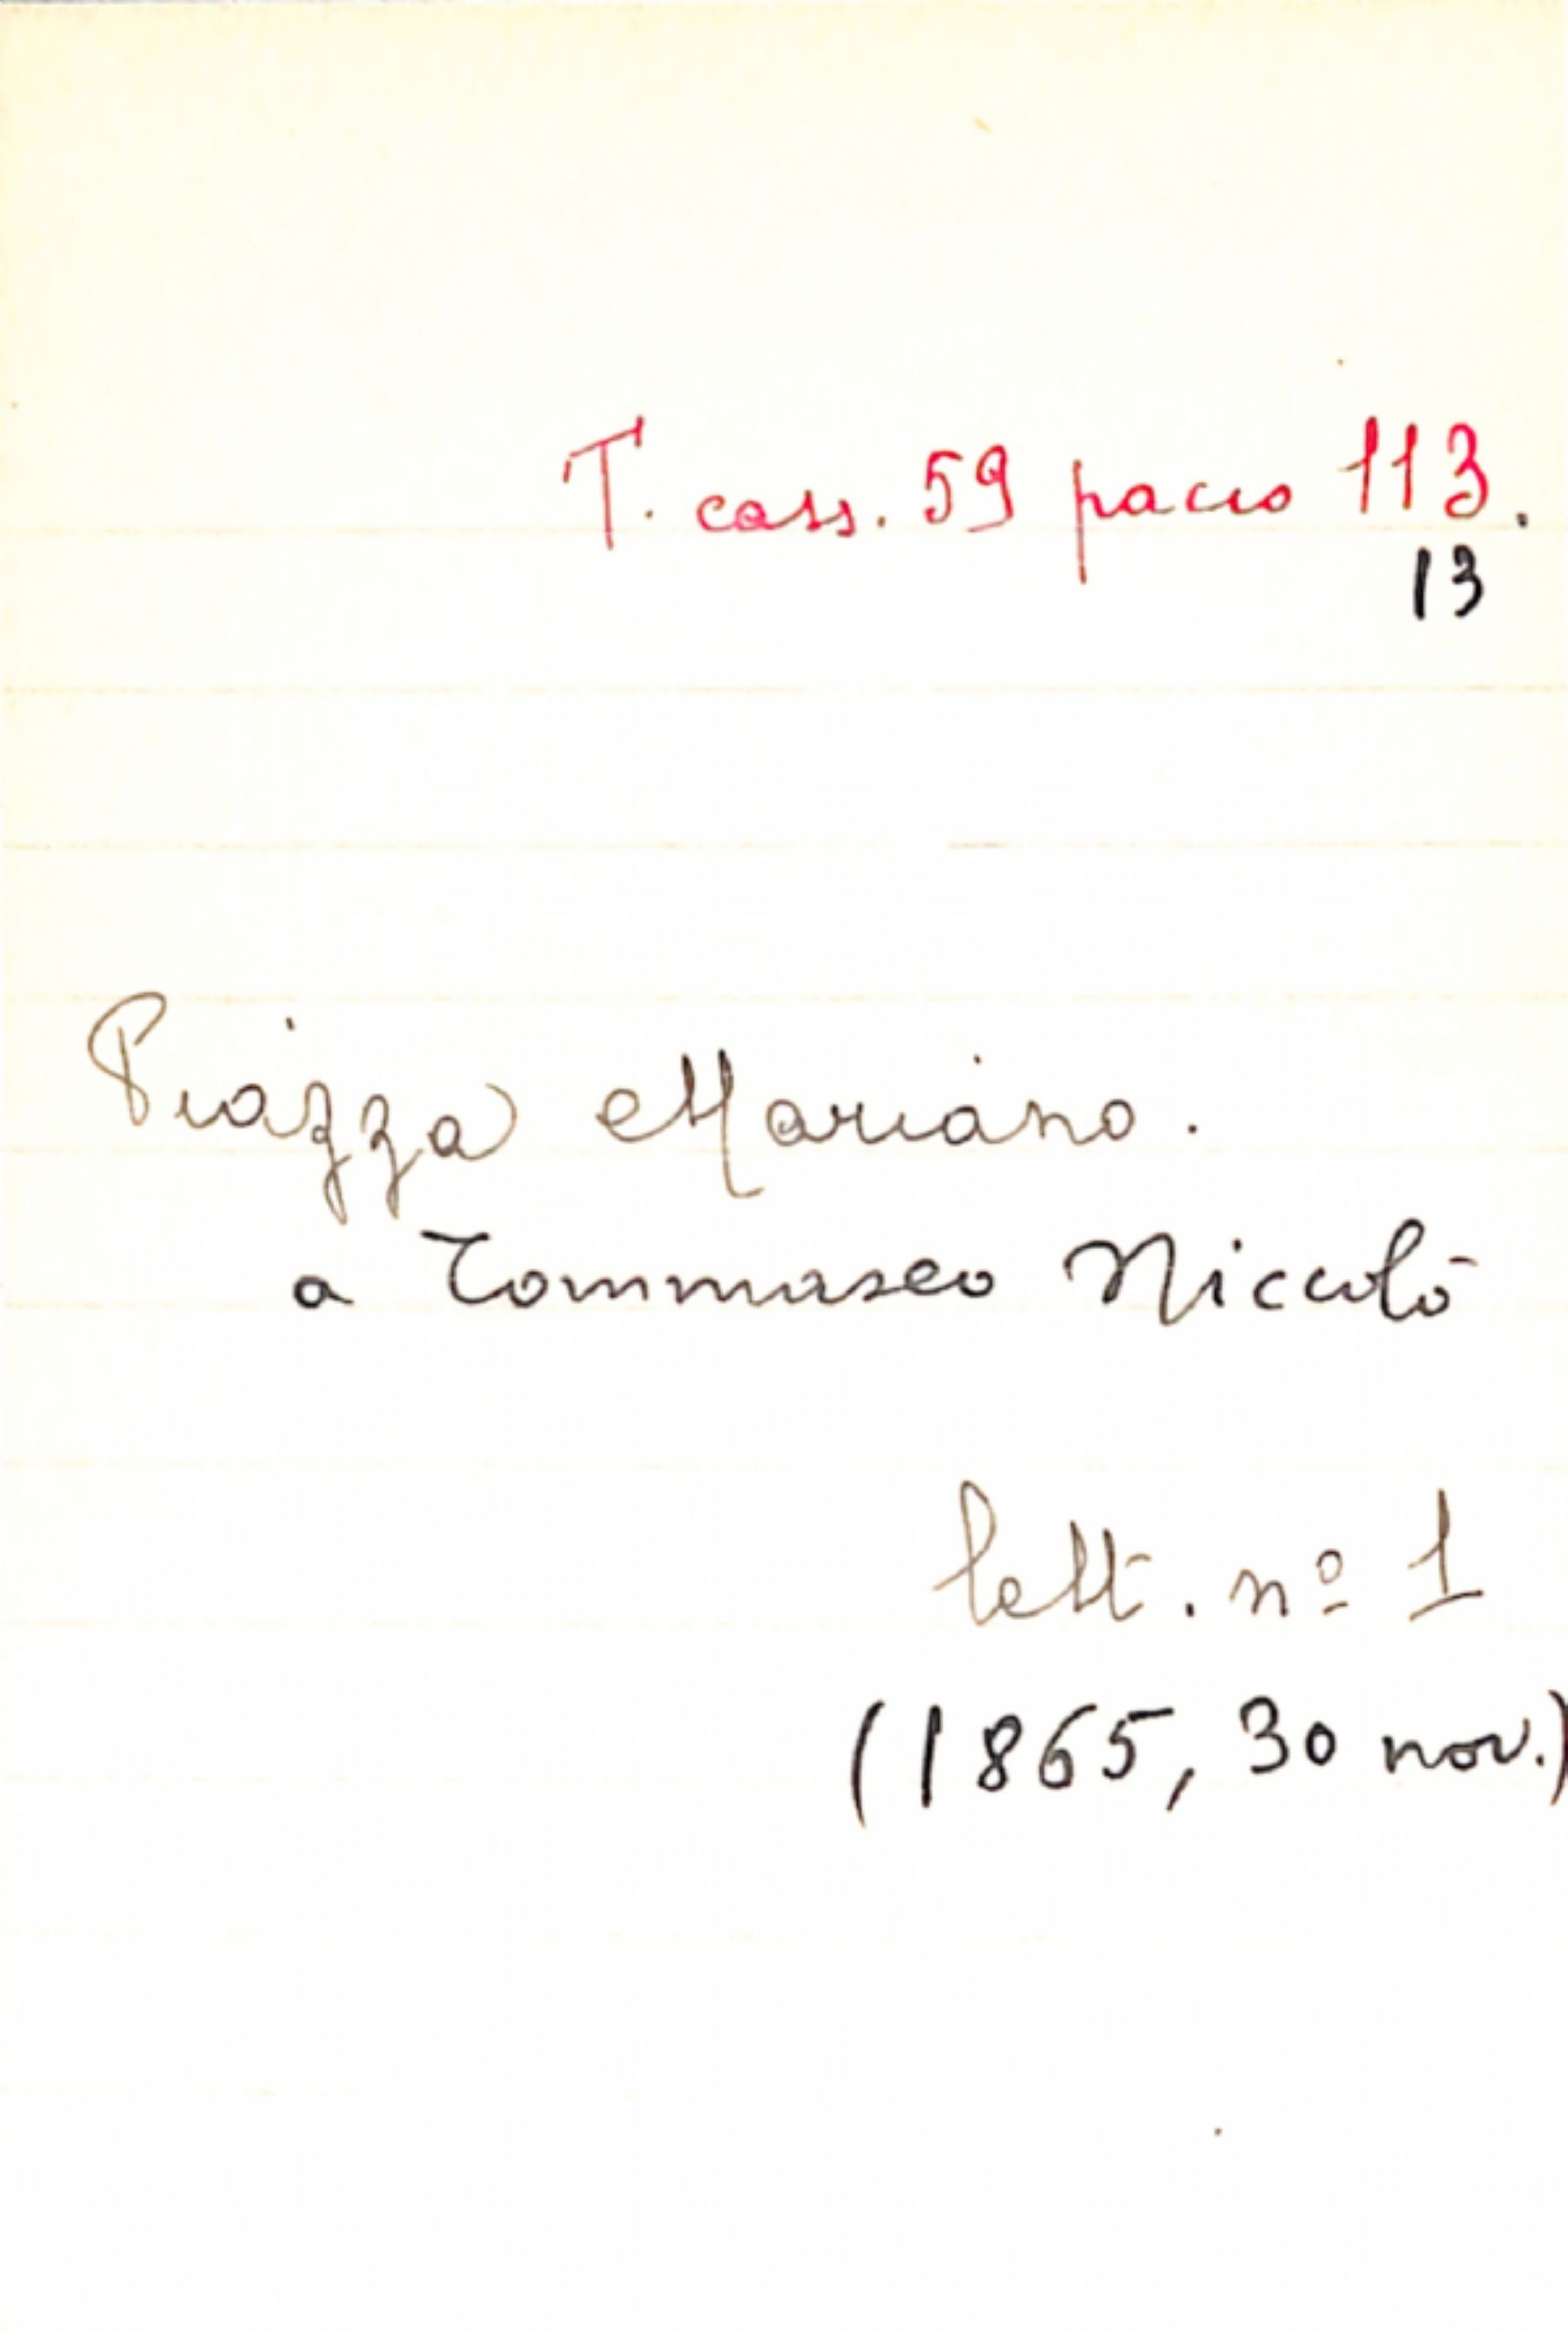 T. cass. 59 pacco 113.
13
Piazza Mariano.
a Tommaseo Niccolò
lett. nº 1
(1865, 30 nov.)